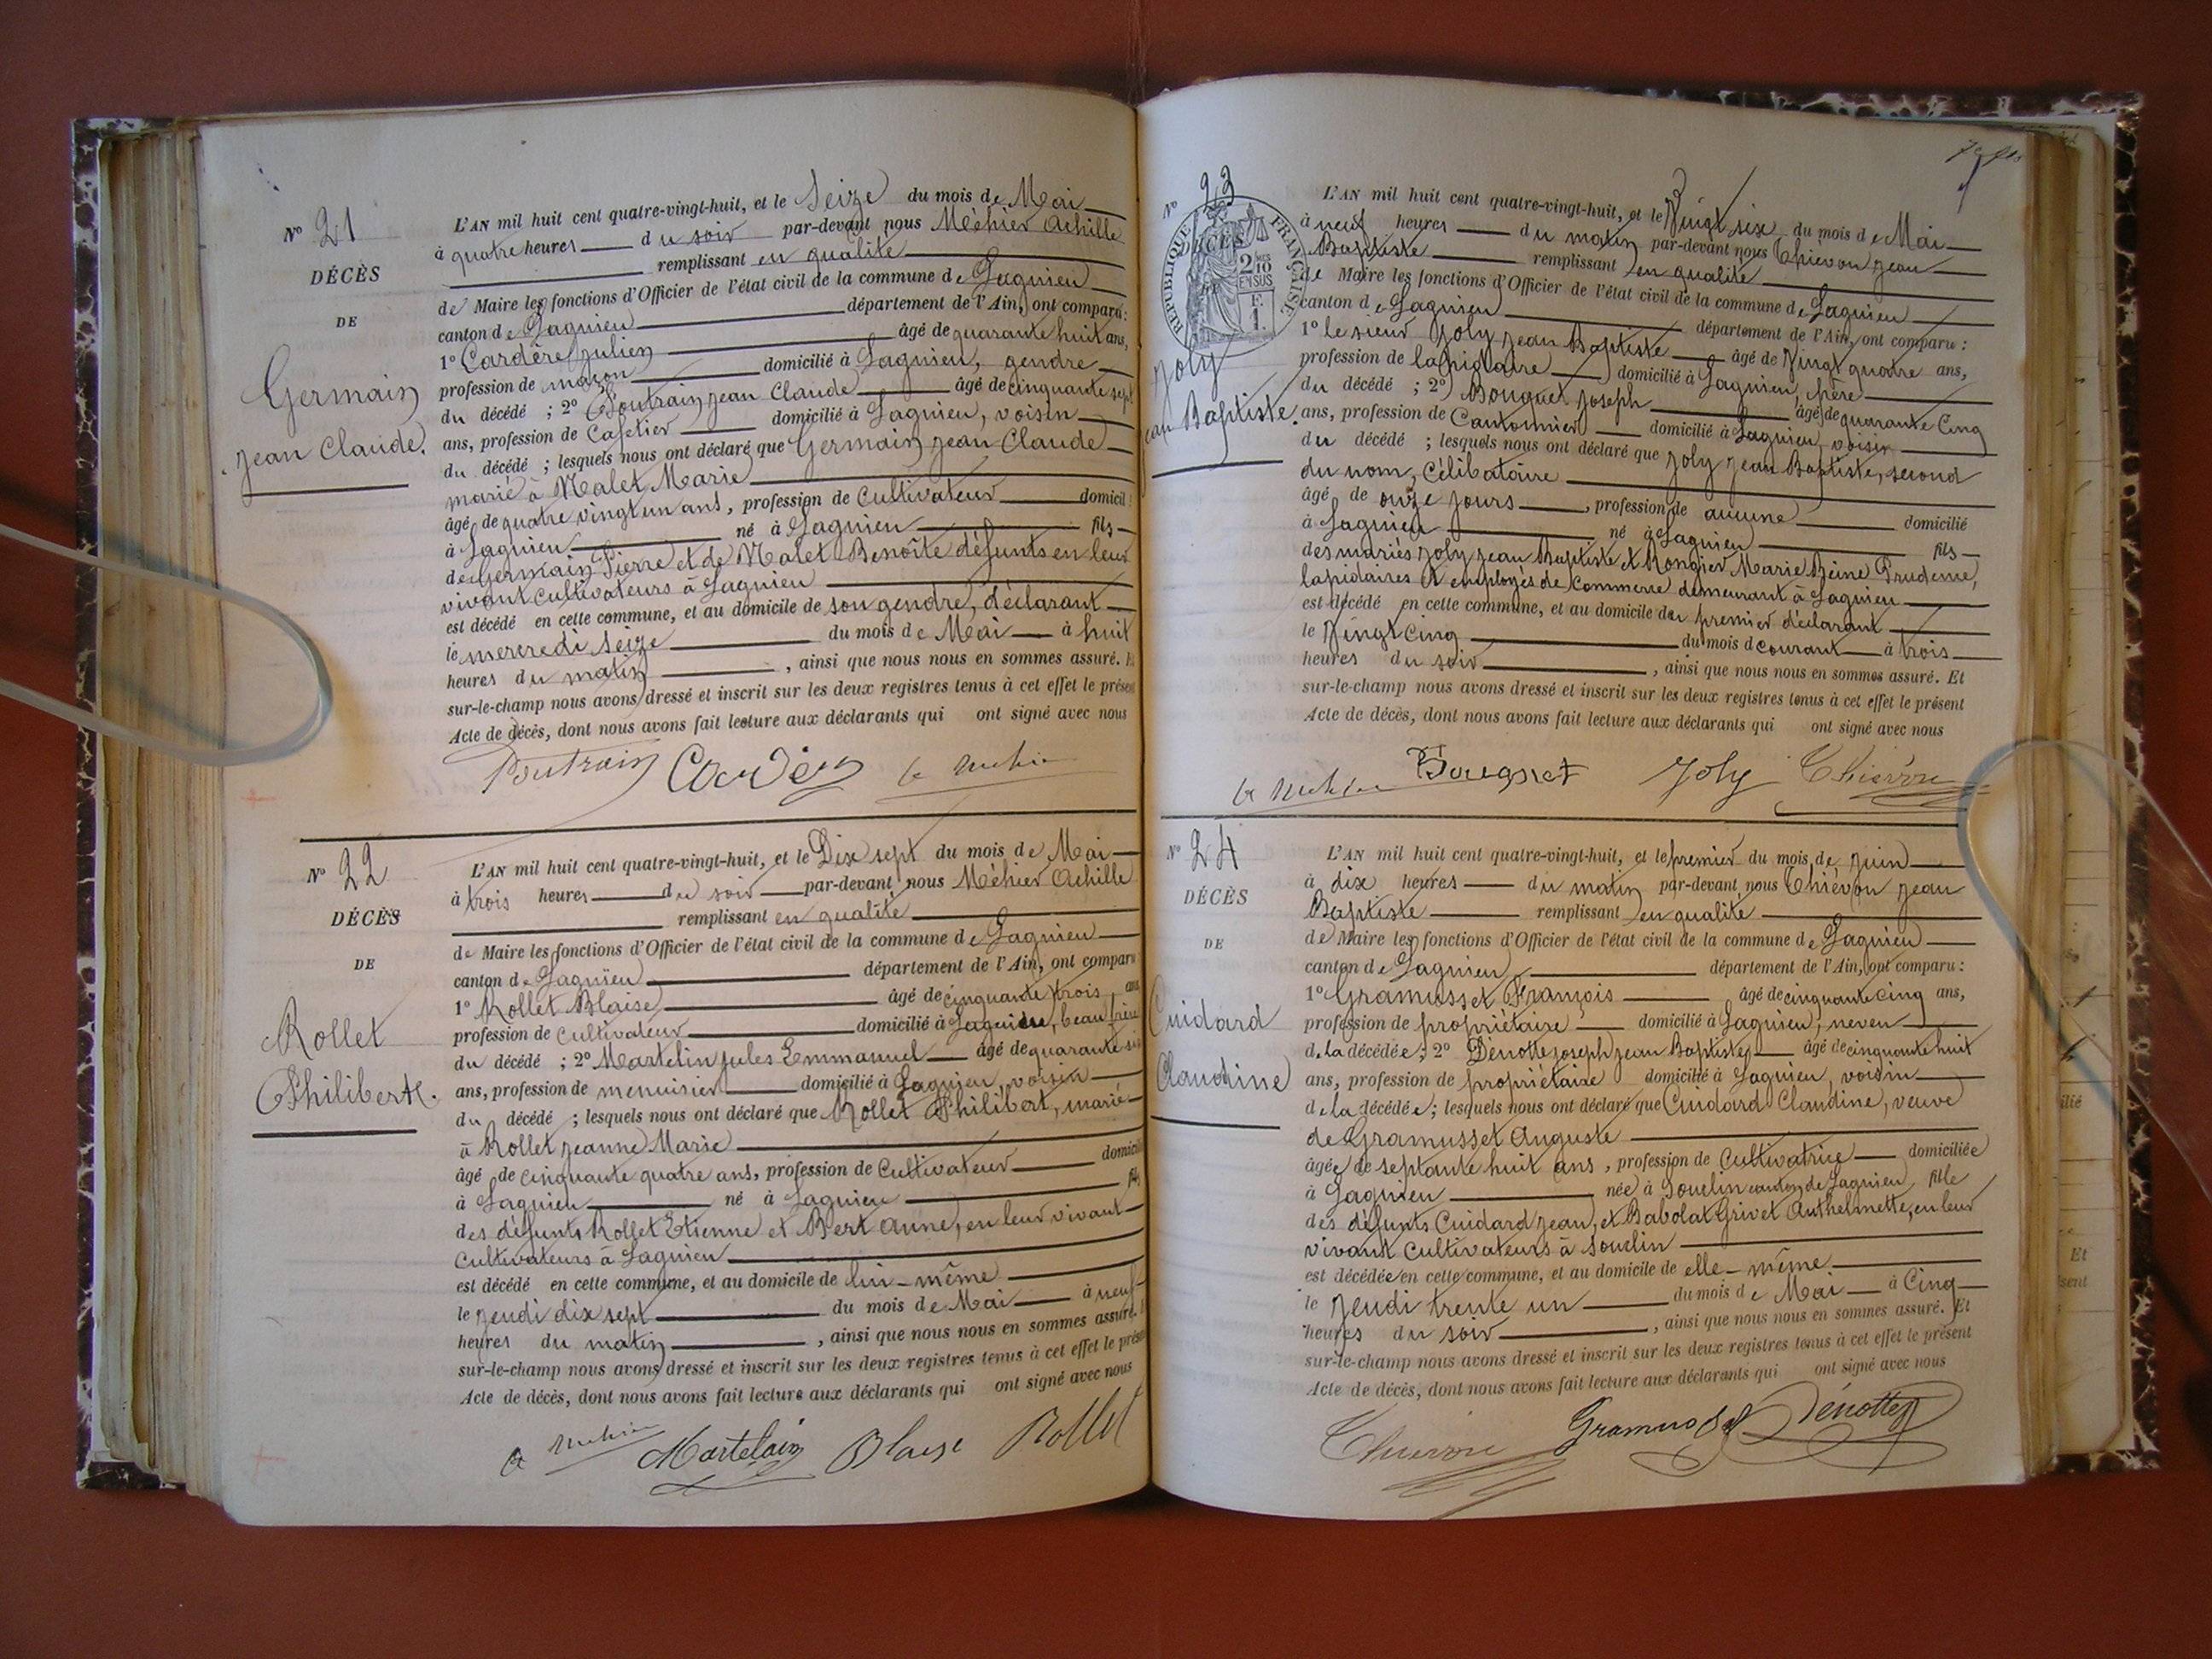 Nº 21
DÉCÈS
DE
Germain
Jean Claude.
L'AN mil huit cent quatre-vingt-huit, et le Seize du mois de Mai
à quatre heures du soir par-devant nous Méhier Achille
remplissant en qualité
de Maire les fonctions d'Officier de l'état civil de la commune de Lagnieu
canton de Lagnieu département de l'Ain, ont comparu :
1º Cardère Julien âgé de quarante huit ans,
profession de maçon domicilié à Lagnieu, gendre
du décédé ; 2º Poutrain Jean Claude âgé de cinquante sept
ans, profession de Cafetier domicilié à Lagnieu, voisin
du décédé ; lesquels nous ont déclaré que Germain Jean Claude
marié à Malet Marie
âgé de quatre vingt un ans, profession de Cultivateur domicil
à Lagnieu né à Lagnieu fils
de Germain Pierre et de Malet Benoîte défunts en leur
vivant cultivateurs à Lagnieu
est décédé en cette commune, et au domicile de son gendre, déclarant
le mercredi seize du mois de Mai à huit
heures du matin , ainsi que nous nous en sommes assuré. E
sur-le-champ nous avons dressé et inscrit sur les deux registres tenus à cet effet le présent
Acte de décès, dont nous avons fait lecture aux déclarants qui ont signé avec nous
Poutrain
Nº 22
DÉCÈS
DE
Rollet
Philibert.
L'AN mil huit cent quatre-vingt-huit, et le Dix sept du mois de Mai
à trois heures du soir par-devant nous Méhier Achille
remplissant en qualité
de Maire les fonctions d'Officier de l'état civil de la commune de Lagnieu
canton de Lagnieu département de l'Ain, ont comparu
1º Rollet Blaise âgé de cinquante trois ans
profession de Cultivateur domicilié à Lagnieu, beau frère
du décédé ; 2º Martelin Jules Emmanuel âgé de quarante
ans, profession de menuisier domicilié à Lagnieu, voisin
du décédé ; lesquels nous ont déclaré que Rollet Philibert, marié
à Rollet Jeanne Marie
âgé de cinquante quatre ans, profession de Cultivateur domici
à Lagnieu né à Lagnieu fils
des défunts Rollet Etienne et Bert Anne, en leur vivant
Cultivateurs à Lagnieu
est décédé en cette commune, et au domicile de lui-même
le Jeudi dix sept du mois de Mai à neuf
heures du matin , ainsi que nous nous en sommes assuré.
sur-le-champ nous avons dressé et inscrit sur les deux registres tenus à cet effet le prése
Acte de décès, dont nous avons fait lecture aux déclarants qui ont signé avec nous
Martelain Blaise Rollet
Nº 23
DÉCÈS
RÉPUBLIQUE FRANÇAISE
2 10 EN SUS
F. 1.
Joly
Jean Baptiste.
L'AN mil huit cent quatre-vingt-huit, et le Vingt six du mois de Mai
à neuf heures du matin par-devant nous Thiévon Jean
Baptiste remplissant en qualité
de Maire les fonctions d'Officier de l'état civil de la commune de Lagnieu
canton de Lagnieu département de l'Ain, ont comparu :
1º le sieur Joly Jean Baptiste âgé de Vingt quatre ans,
profession de lapidaire domicilié à Lagnieu, père
du décédé ; 2º Bouquet Joseph âgé de quarante Cinq
ans, profession de Cantonnier domicilié à Lagnieu, voisin
du décédé ; lesquels nous ont déclaré que Joly Jean Baptiste, second
du nom, Célibataire
âgé de onze jours , profession de aucune domicilié
à Lagnieu né à Lagnieu fils
des mariés Joly Jean Baptiste et Rongier Marie Reine Prudence,
lapidaires et employés de Commerce demeurant à Lagnieu
est décédé en cette commune, et au domicile du premier déclarant
le Vingt Cinq du mois d courant à trois
heures du soir , ainsi que nous nous en sommes assuré. Et
sur-le-champ nous avons dressé et inscrit sur les deux registres tenus à cet effet le présent
Acte de décès, dont nous avons fait lecture aux déclarants qui ont signé avec nous
Bouquet Joly
Nº 24
DÉCÈS
DE
Cuidard
Claudine
L'AN mil huit cent quatre-vingt-huit, et le premier du mois de Juin
à dix heures du matin par-devant nous Thiévon Jean
Baptiste remplissant en qualité
de Maire les fonctions d'Officier de l'état civil de la commune de Lagnieu
canton de Lagnieu département de l'Ain, ont comparu :
1º Gramusset François âgé de cinquante cinq ans,
profession de propriétaire domicilié à Lagnieu, neveu
de la décédée ; 2º Dénotte Joseph Jean Baptiste âgé de cinquante huit
ans, profession de propriétaire domicilié à Lagnieu, voisin
de la décédée ; lesquels nous ont déclaré que Cuidard Claudine, veuve
de Gramusset Auguste
âgée de septante huit ans , profession de Cultivatrice domiciliée
à Lagnieu née à Souclin canton de Lagnieu, fille
des défunts Cuidard Jean, et Babolat Grivet Anthelmette, en leur
vivant Cultivateurs à Souclin
est décédée en cette commune, et au domicile de elle-même
le Jeudi trente un du mois de Mai à Cinq
heures du soir , ainsi que nous nous en sommes assuré. Et
sur-le-champ nous avons dressé et inscrit sur les deux registres tenus à cet effet le présent
Acte de décès, dont nous avons fait lecture aux déclarants qui ont signé avec nous
Gramusset Dénotte